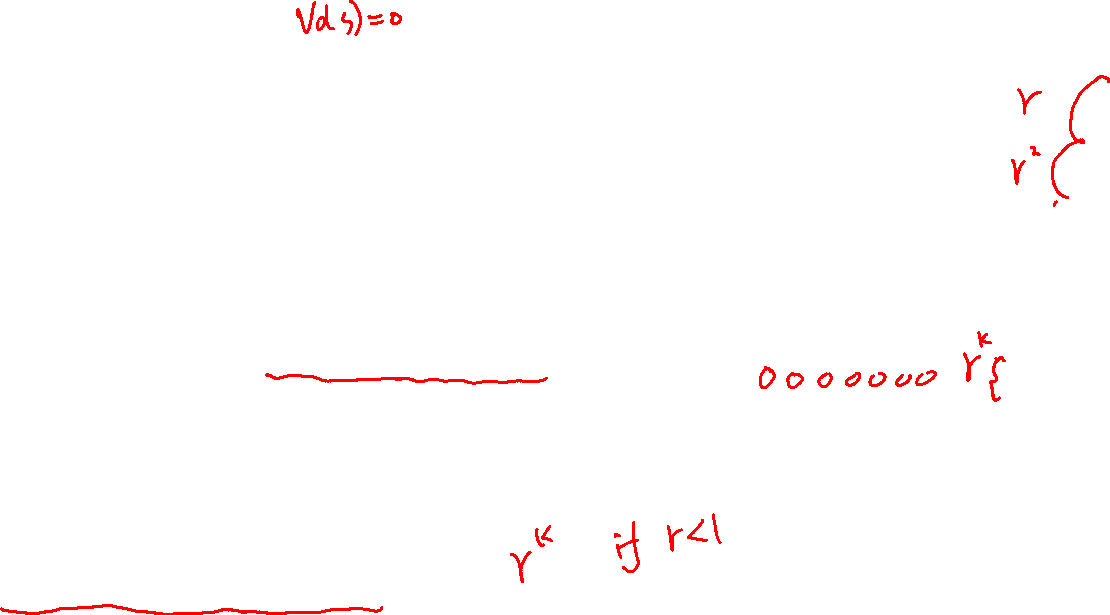 Vds)=0
r
r²
0000000 r^k {
r^k if r<1